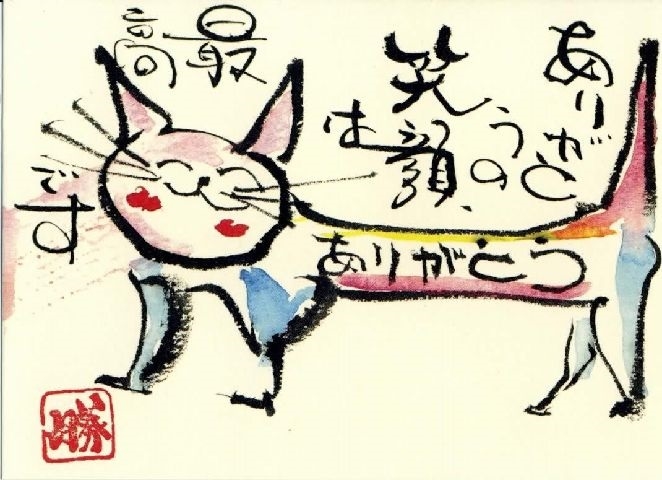 ありがと
うの
笑顔
は
最
高
です
ありがとう
勝